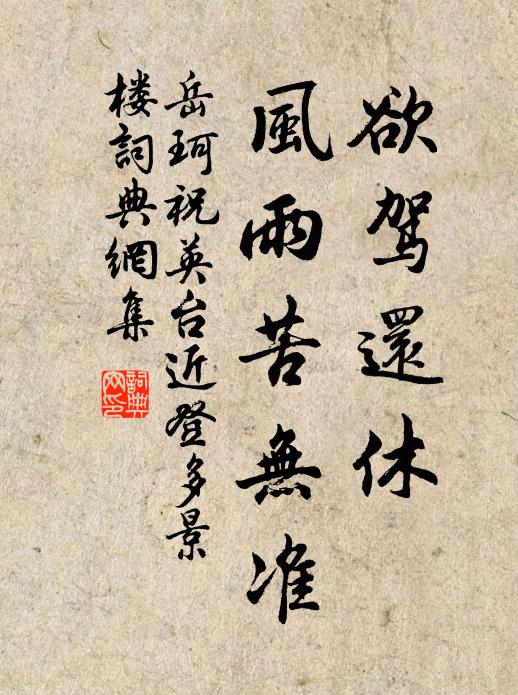 欲駕還休
風雨苦無准
岳珂祝英台近登多景
楼詞典網集
詞典网印